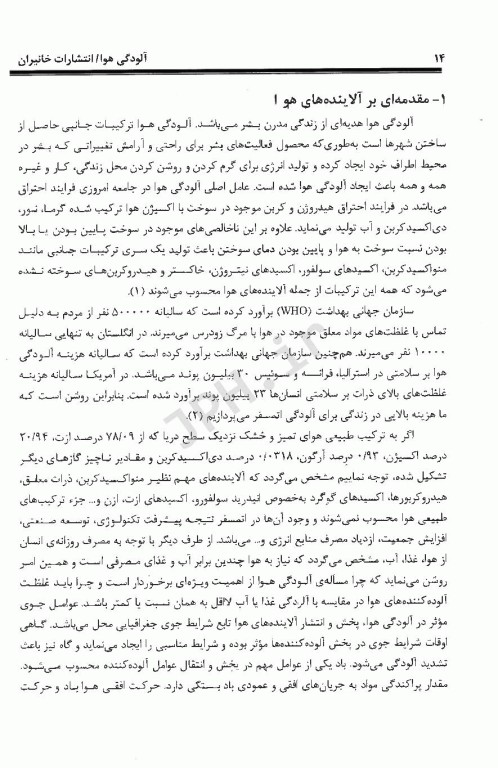 ۱۴
آلودگی هوا/ انتشارات خانیران
۱- مقدمه‌ای بر آلاینده‌های هوا
آلودگی هوا هدیه‌ای از زندگی مدرن بشر می‌باشد. آلودگی هوا ترکیبات جانبی حاصل از
ساختن شهرها است به‌طوری‌که محصول فعالیت‌های بشر برای راحتی و آرامش تغییراتی که بشر در
محیط اطراف خود ایجاد کرده و تولید انرژی برای گرم کردن و روشن کردن محل زندگی، کار و غیره
همه و همه باعث ایجاد آلودگی هوا شده است. عامل اصلی آلودگی هوا در جامعه امروزی فرایند احتراق
می‌باشد. در فرآیند احتراق هیدروژن و کربن موجود در سوخت با اکسیژن هوا ترکیب شده گرما، نور،
دی‌اکسیدکربن و آب تولید می‌نماید. علاوه بر این ناخالصی‌های موجود در سوخت پایین بودن یا بالا
بودن نسبت سوخت به هوا و پایین بودن دمای سوختن باعث تولید یک سری ترکیبات جانبی مانند
منواکسیدکربن، اکسیدهای سولفور، اکسیدهای نیتروژن، خاکستر و هیدروکربن‌های سوخته نشده
می‌شود که همه این ترکیبات از جمله آلاینده‌های هوا محسوب می‌شوند (۱).
سازمان جهانی بهداشت (WHO) برآورد کرده است که سالیانه ۵۰۰۰۰۰ نفر از مردم به دلیل
تماس با غلظت‌های مواد معلق موجود در هوا با مرگ زودرس می‌میرند. در انگلستان به تنهایی سالیانه
۱۰۰۰۰ نفر می‌میرند. همچنین سازمان جهانی بهداشت برآورد کرده است که سالیانه هزینه آلودگی
هوا بر سلامتی در استرالیا، فرانسه و سوئیس ۳۰ بیلیون پوند می‌باشد. در آمریکا سالیانه هزینه
غلظت‌های بالای ذرات بر سلامتی انسان‌ها ۲۳ بیلیون پوند برآورد شده است. بنابراین روشن است که
ما هزینه بالایی در زندگی برای آلودگی اتمسفر می‌پردازیم (۲).
اگر به ترکیب طبیعی هوای تمیز و خشک نزدیک سطح دریا که از ۷۸/۰۹ درصد ازت، ۲۰/۹۴
درصد اکسیژن، ۰/۹۳ درصد آرگون، ۰/۰۳۱۸ درصد دی‌اکسیدکربن و مقادیر ناچیز گازهای دیگر
تشکیل شده، توجه نماییم مشخص می‌گردد که آلاینده‌های مهم نظیر منواکسیدکربن، ذرات معلق،
هیدروکربورها، اکسیدهای گوگرد به‌خصوص انیدرید سولفورو، اکسیدهای ازت، ازن و... جزء ترکیب‌های
طبیعی هوا محسوب نمی‌شوند و وجود آن‌ها در اتمسفر نتیجه پیشرفت تکنولوژی، توسعه صنعتی،
افزایش جمعیت، ازدیاد مصرف منابع انرژی و... می‌باشد. از طرف دیگر با توجه به مصرف روزانه‌ی انسان
از هوا، غذا، آب، مشخص می‌گردد که نیاز به هوا چندین برابر آب و غذای مصرفی است و همین امر
روشن می‌نماید که چرا مسأله‌ی آلودگی هوا از اهمیت ویژه‌ای برخوردار است و چرا باید غلظت
آلوده‌کننده‌های هوا در مقایسه با آلردگی غذا یا آب لااقل به همان نسبت یا کمتر باشد. عوامل جوی
مؤثر در آلودگی هوا، پخش و انتشار آلاینده‌های هوا تابع شرایط جوی جغرافیایی محل می‌باشد. گاهی
اوقات شرایط جوی در پخش آلوده‌کننده‌ها مؤثر بوده و شرایط مناسبی را ایجاد می‌نماید و گاه نیز باعث
تشدید آلودگی می‌شود. باد یکی از عوامل مهم در پخش و انتقال عوامل آلوده‌کننده محسوب می‌شود.
مقدار پراکندگی مواد به جریان‌های افقی و عمودی باد بستگی دارد. حرکت افقی هوا باد و حرکت